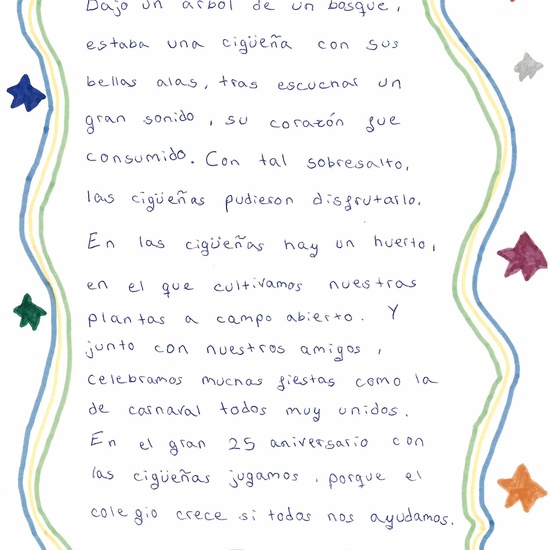 Bajo un árbol de un bosque,
estaba una cigüeña con sus
bellas alas, tras escuchar un
gran sonido, su corazón fue
consumido. Con tal sobresalto,
las cigüeñas pudieron disfrutarlo.
En las cigüeñas hay un huerto,
en el que cultivamos nuestras
plantas a campo abierto. Y
junto con nuestros amigos,
celebramos muchas fiestas como la
de carnaval todos muy unidos.
En el gran 25 aniversario con
las cigüeñas jugamos, porque el
colegio crece si todos nos ayudamos.